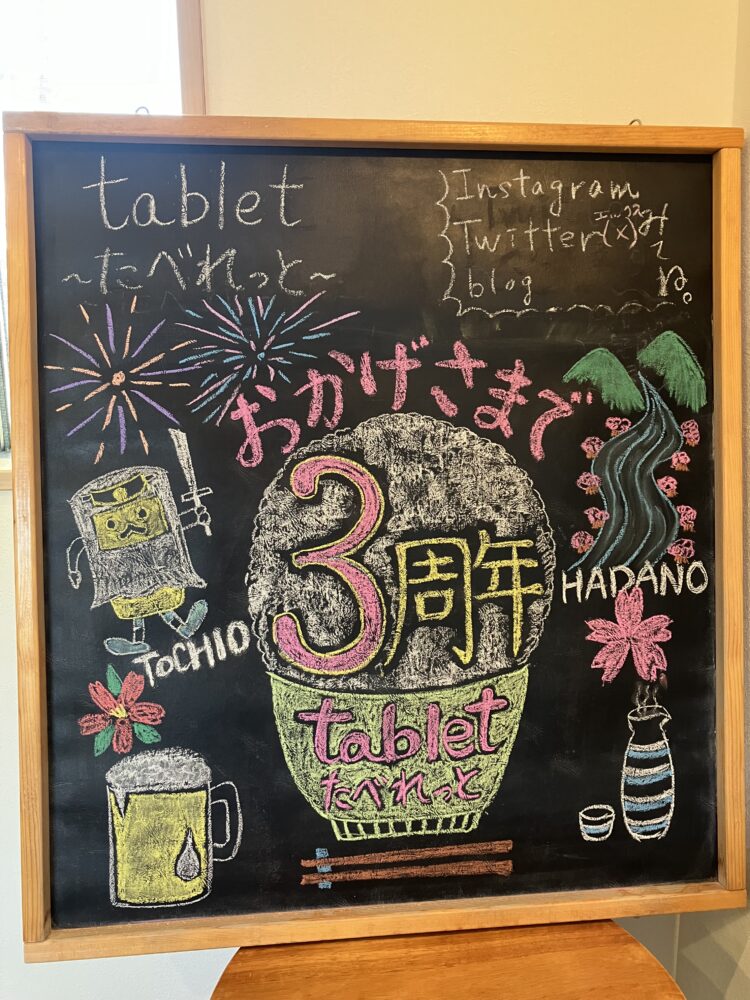 tablet
~たべれっと~
Instagram
Twitter(X)
blog
みてね。
おかげさまで
3周年
TOCHIO
HADANO
tablet
たべれっと